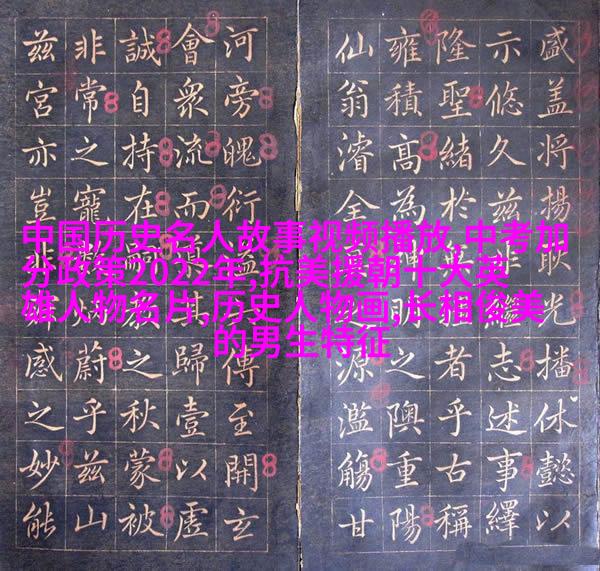 中国历史名人故事视频播放,中考加
分政策2022年,抗美援朝十大英
雄人物名片,历史人物画,长相俊美
的男生特征
盛盖将揚耿光播休懿以
示悠久兹志述事繹
隆聖緒於者乎古稱
雍積高為明之隩重陽
仙翁濬全源濫觴甘
河旁魄衍益傳至開玄
會衆流而歸壹以虛
誠自持在嗣之秋蒙被
非常之寵蔚乎兹山
兹宮亦豈感之妙能